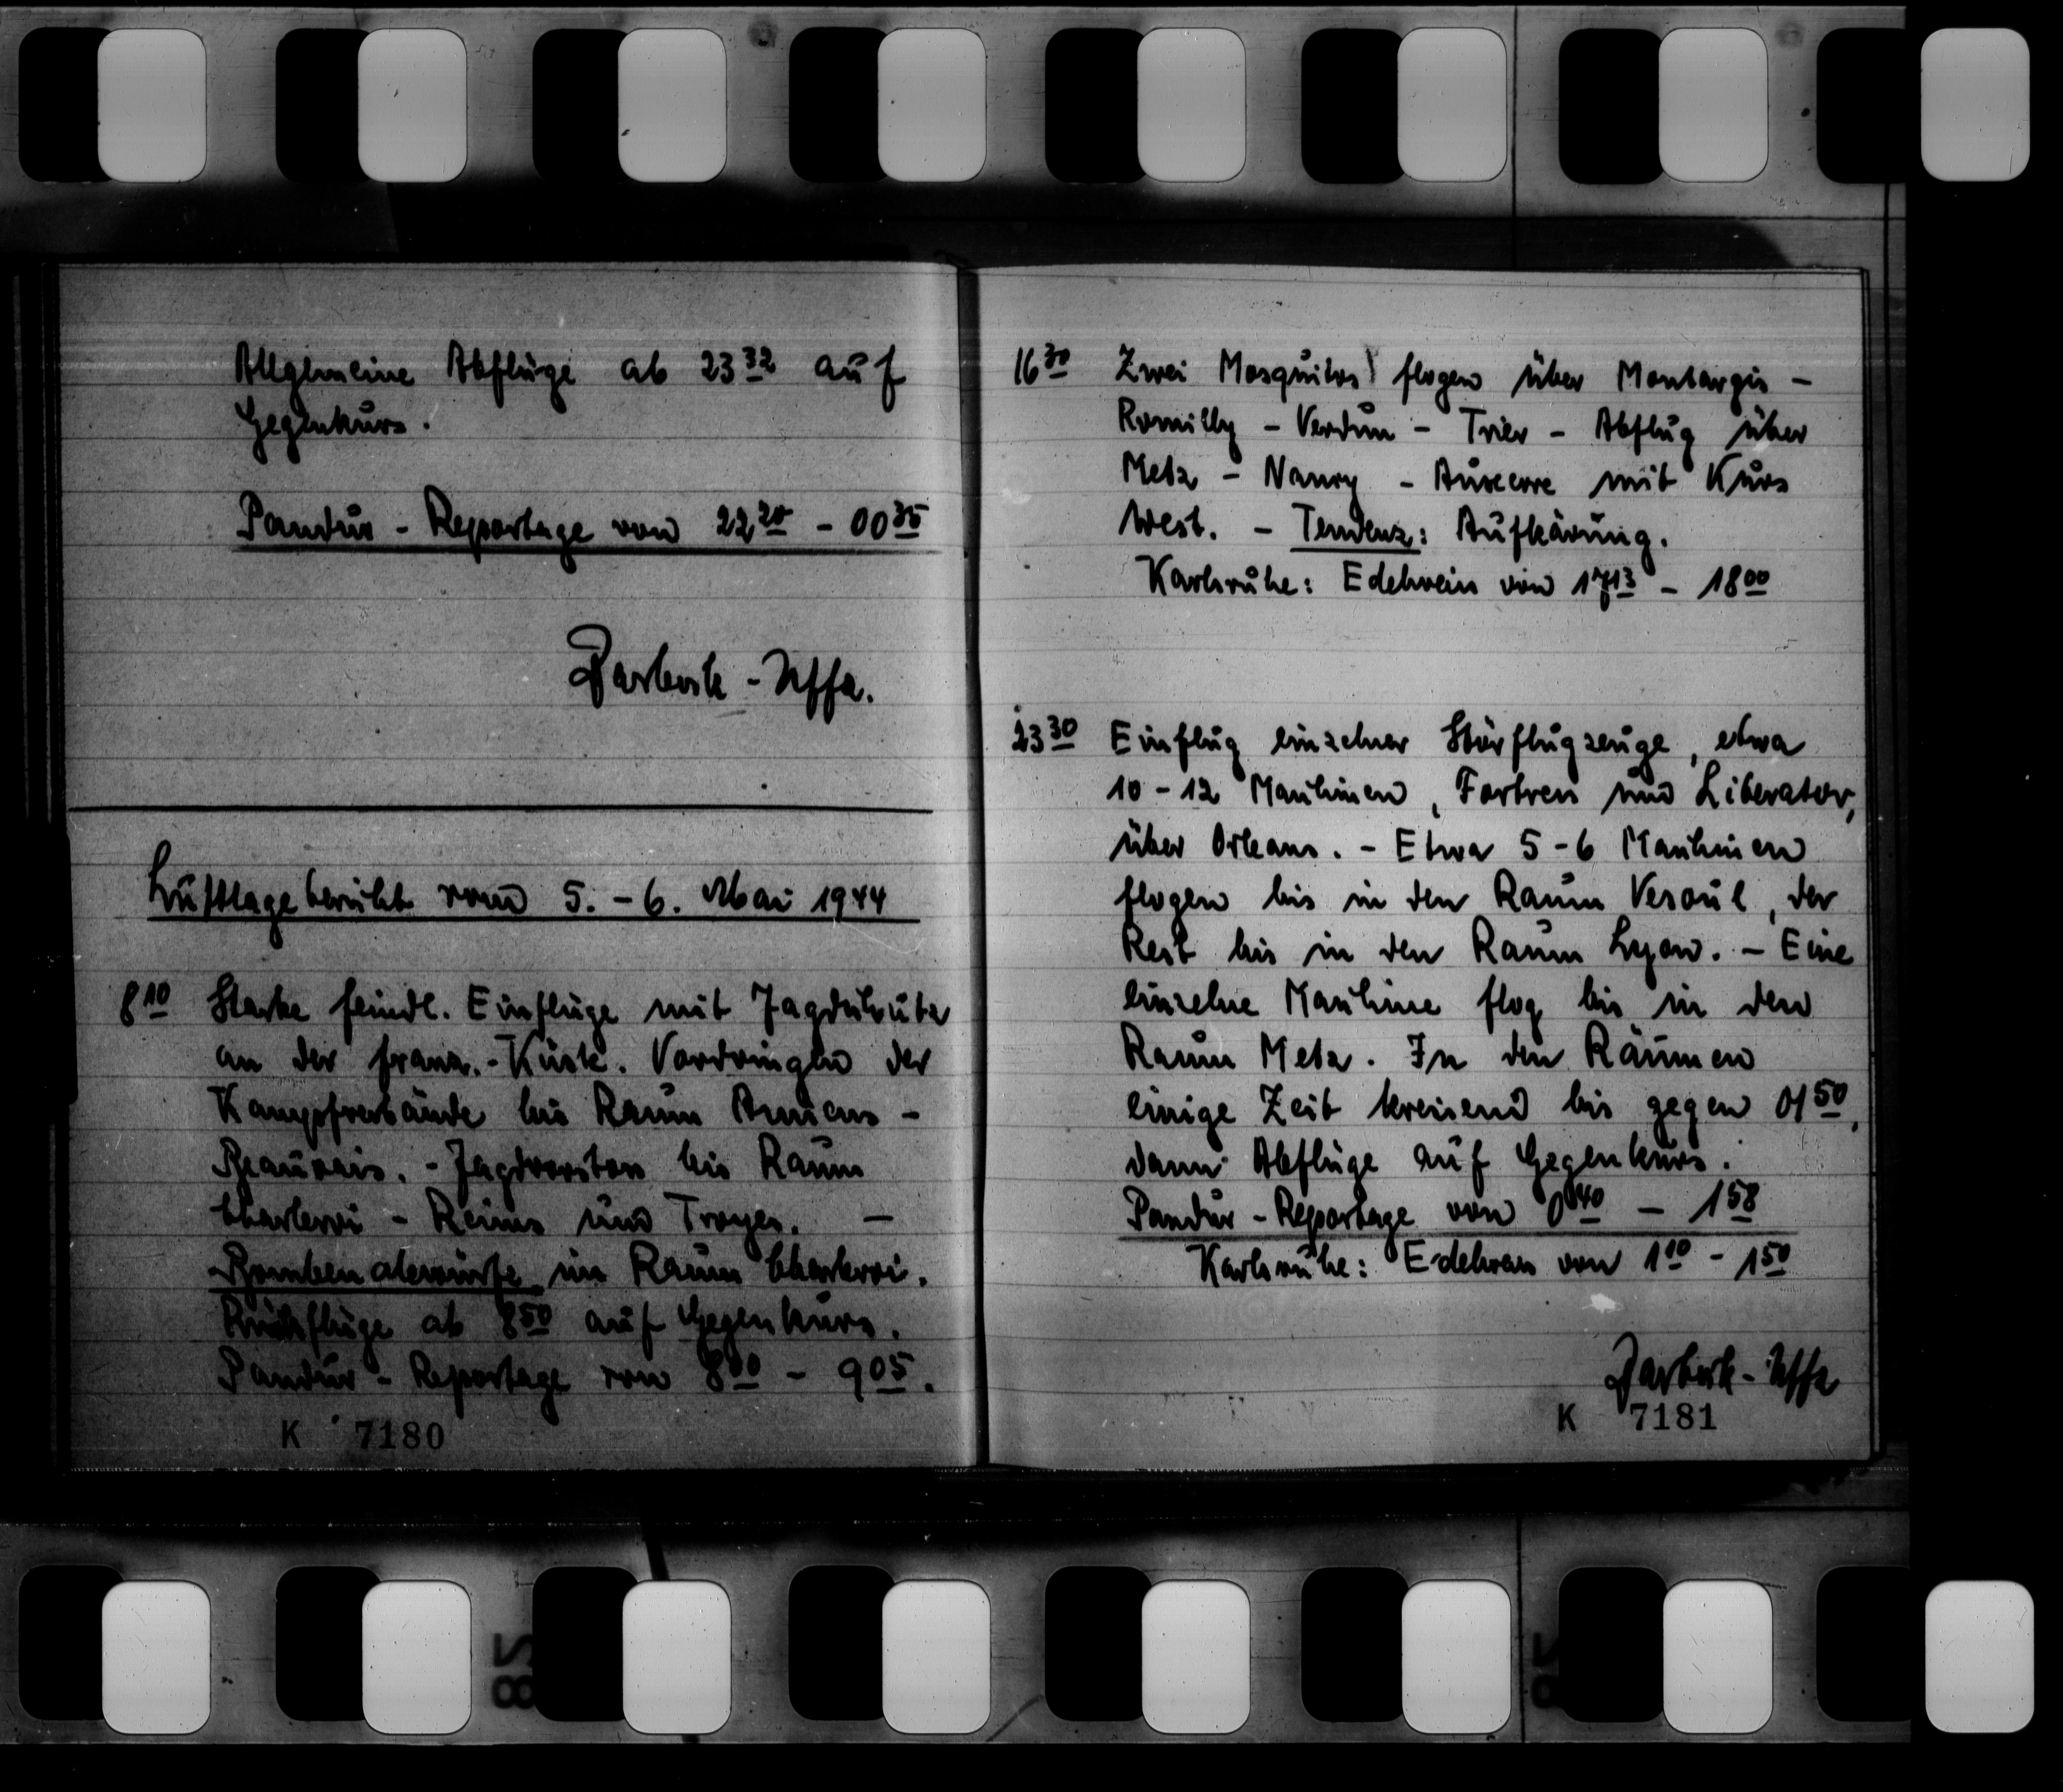 Allgemeine Abflüge ab 23³² auf
Gegenkurs.
Pandur - Reportage von 22²⁰ - 00³⁵
- Uffz.
Luftlagebericht vom 5. - 6. Mai 1944
8¹⁰ Starke feindl. Einflüge mit Jagdschutz
an der franz.-Küste. Vordringen der
Kampfverbände bis Raum Amiens -
Beauvais. - Jagdvorstoss bis Raum
Charleroi - Reims und Troyes. -
Bombenabwürfe im Raum Charleroi.
Rückflüge ab 8⁵⁰ auf Gegenkurs.
Pandur - Reportage von 8⁰⁰ - 9⁰⁵.
K 7180
16³⁰ Zwei Mosquitos flogen über Montargis -
Romilly - Verdun - Trier - Abflug über
Metz - Nancy - Auxerre mit Kurs
West. - Tendenz: Aufkärung.
Karlsruhe: Edelwein von 17¹³ - 18⁰⁰
23³⁰ Einflug einzelner Störflugzeuge, etwa
10 - 12 Maschinen, Fortress und Liberator,
über Orleans. - Etwa 5 - 6 Maschinen
flogen bis in den Raum Vesoul, der
Rest bis in den Raum Lyon. - Eine
einzelne Maschine flog bis in den
Raum Metz. In den Räumen
einige Zeit kreisend bis gegen 01⁵⁰,
dann Abflüge auf Gegenkurs.
Pandur - Reportage von 0⁴⁰ - 1⁵⁸
Karlsruhe: Edelwein von 1¹⁰ - 1⁵⁰
- Uffz
K 7181
82